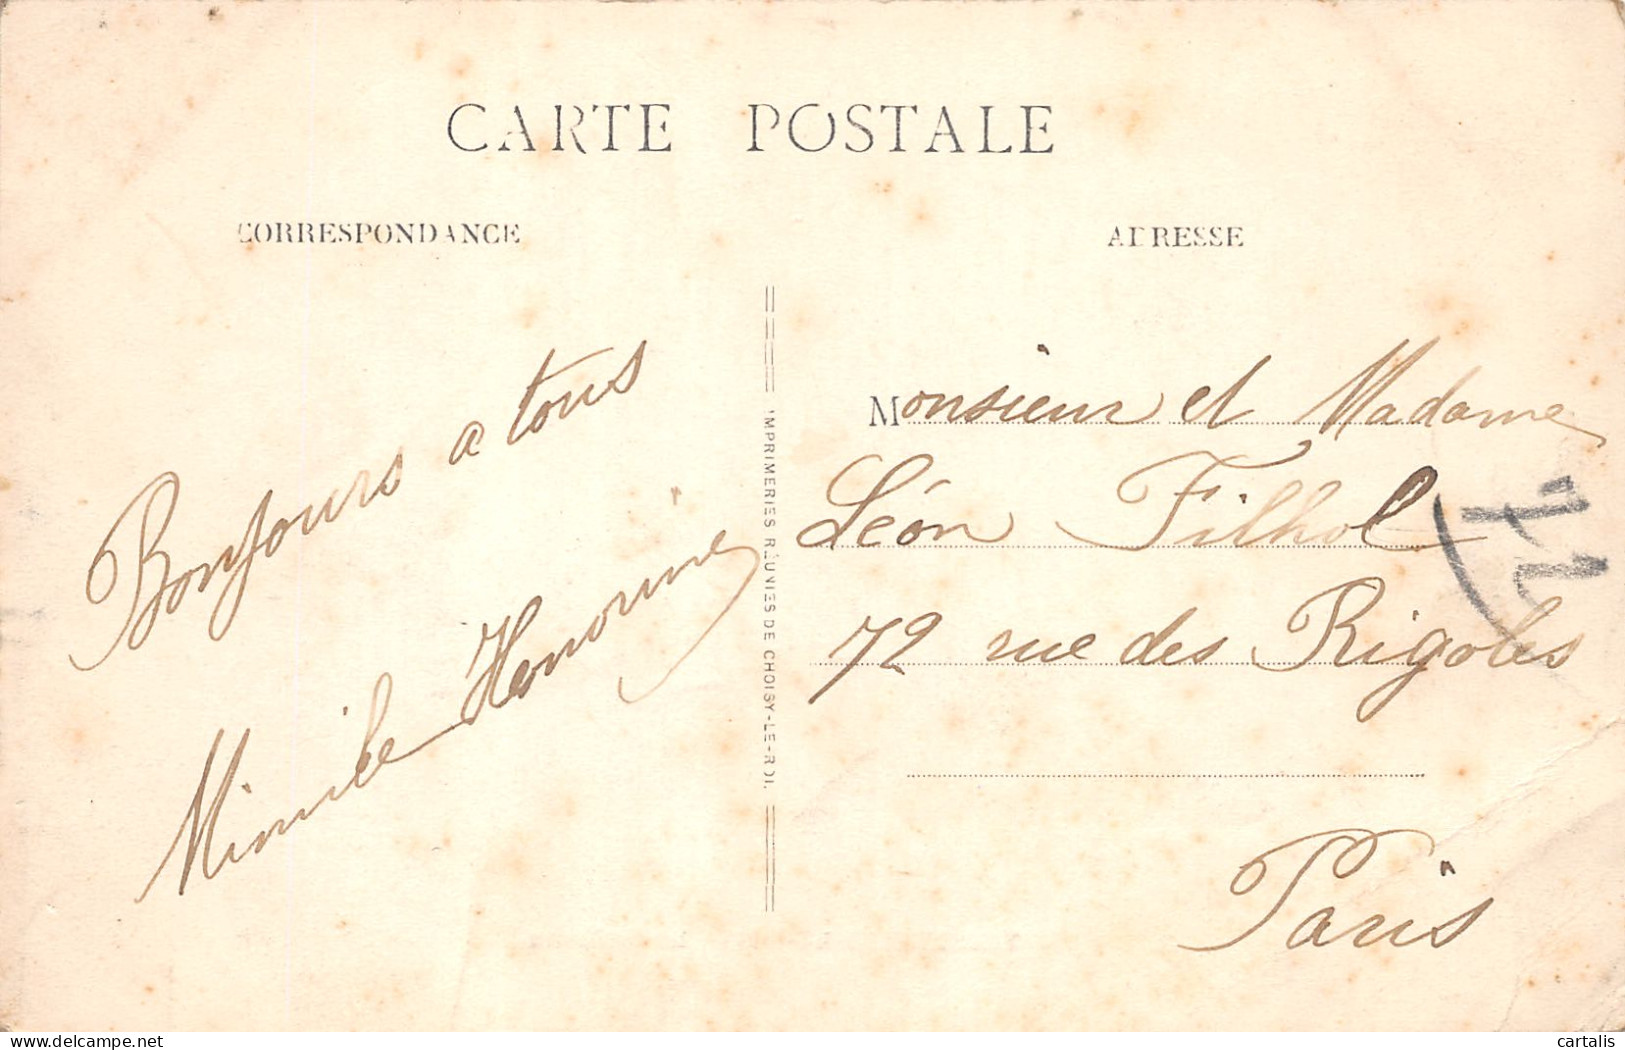 CARTE POSTALE
CORRESPONDANCE
Bonjours a tous
Honorine
IMPRIMERIES RÉUNIES DE CHOISY-LE-ROI.
ADRESSE
Monsieur et Madame
Léon Filhol
72 rue des Rigoles
Paris
delcampe.net
cartalis